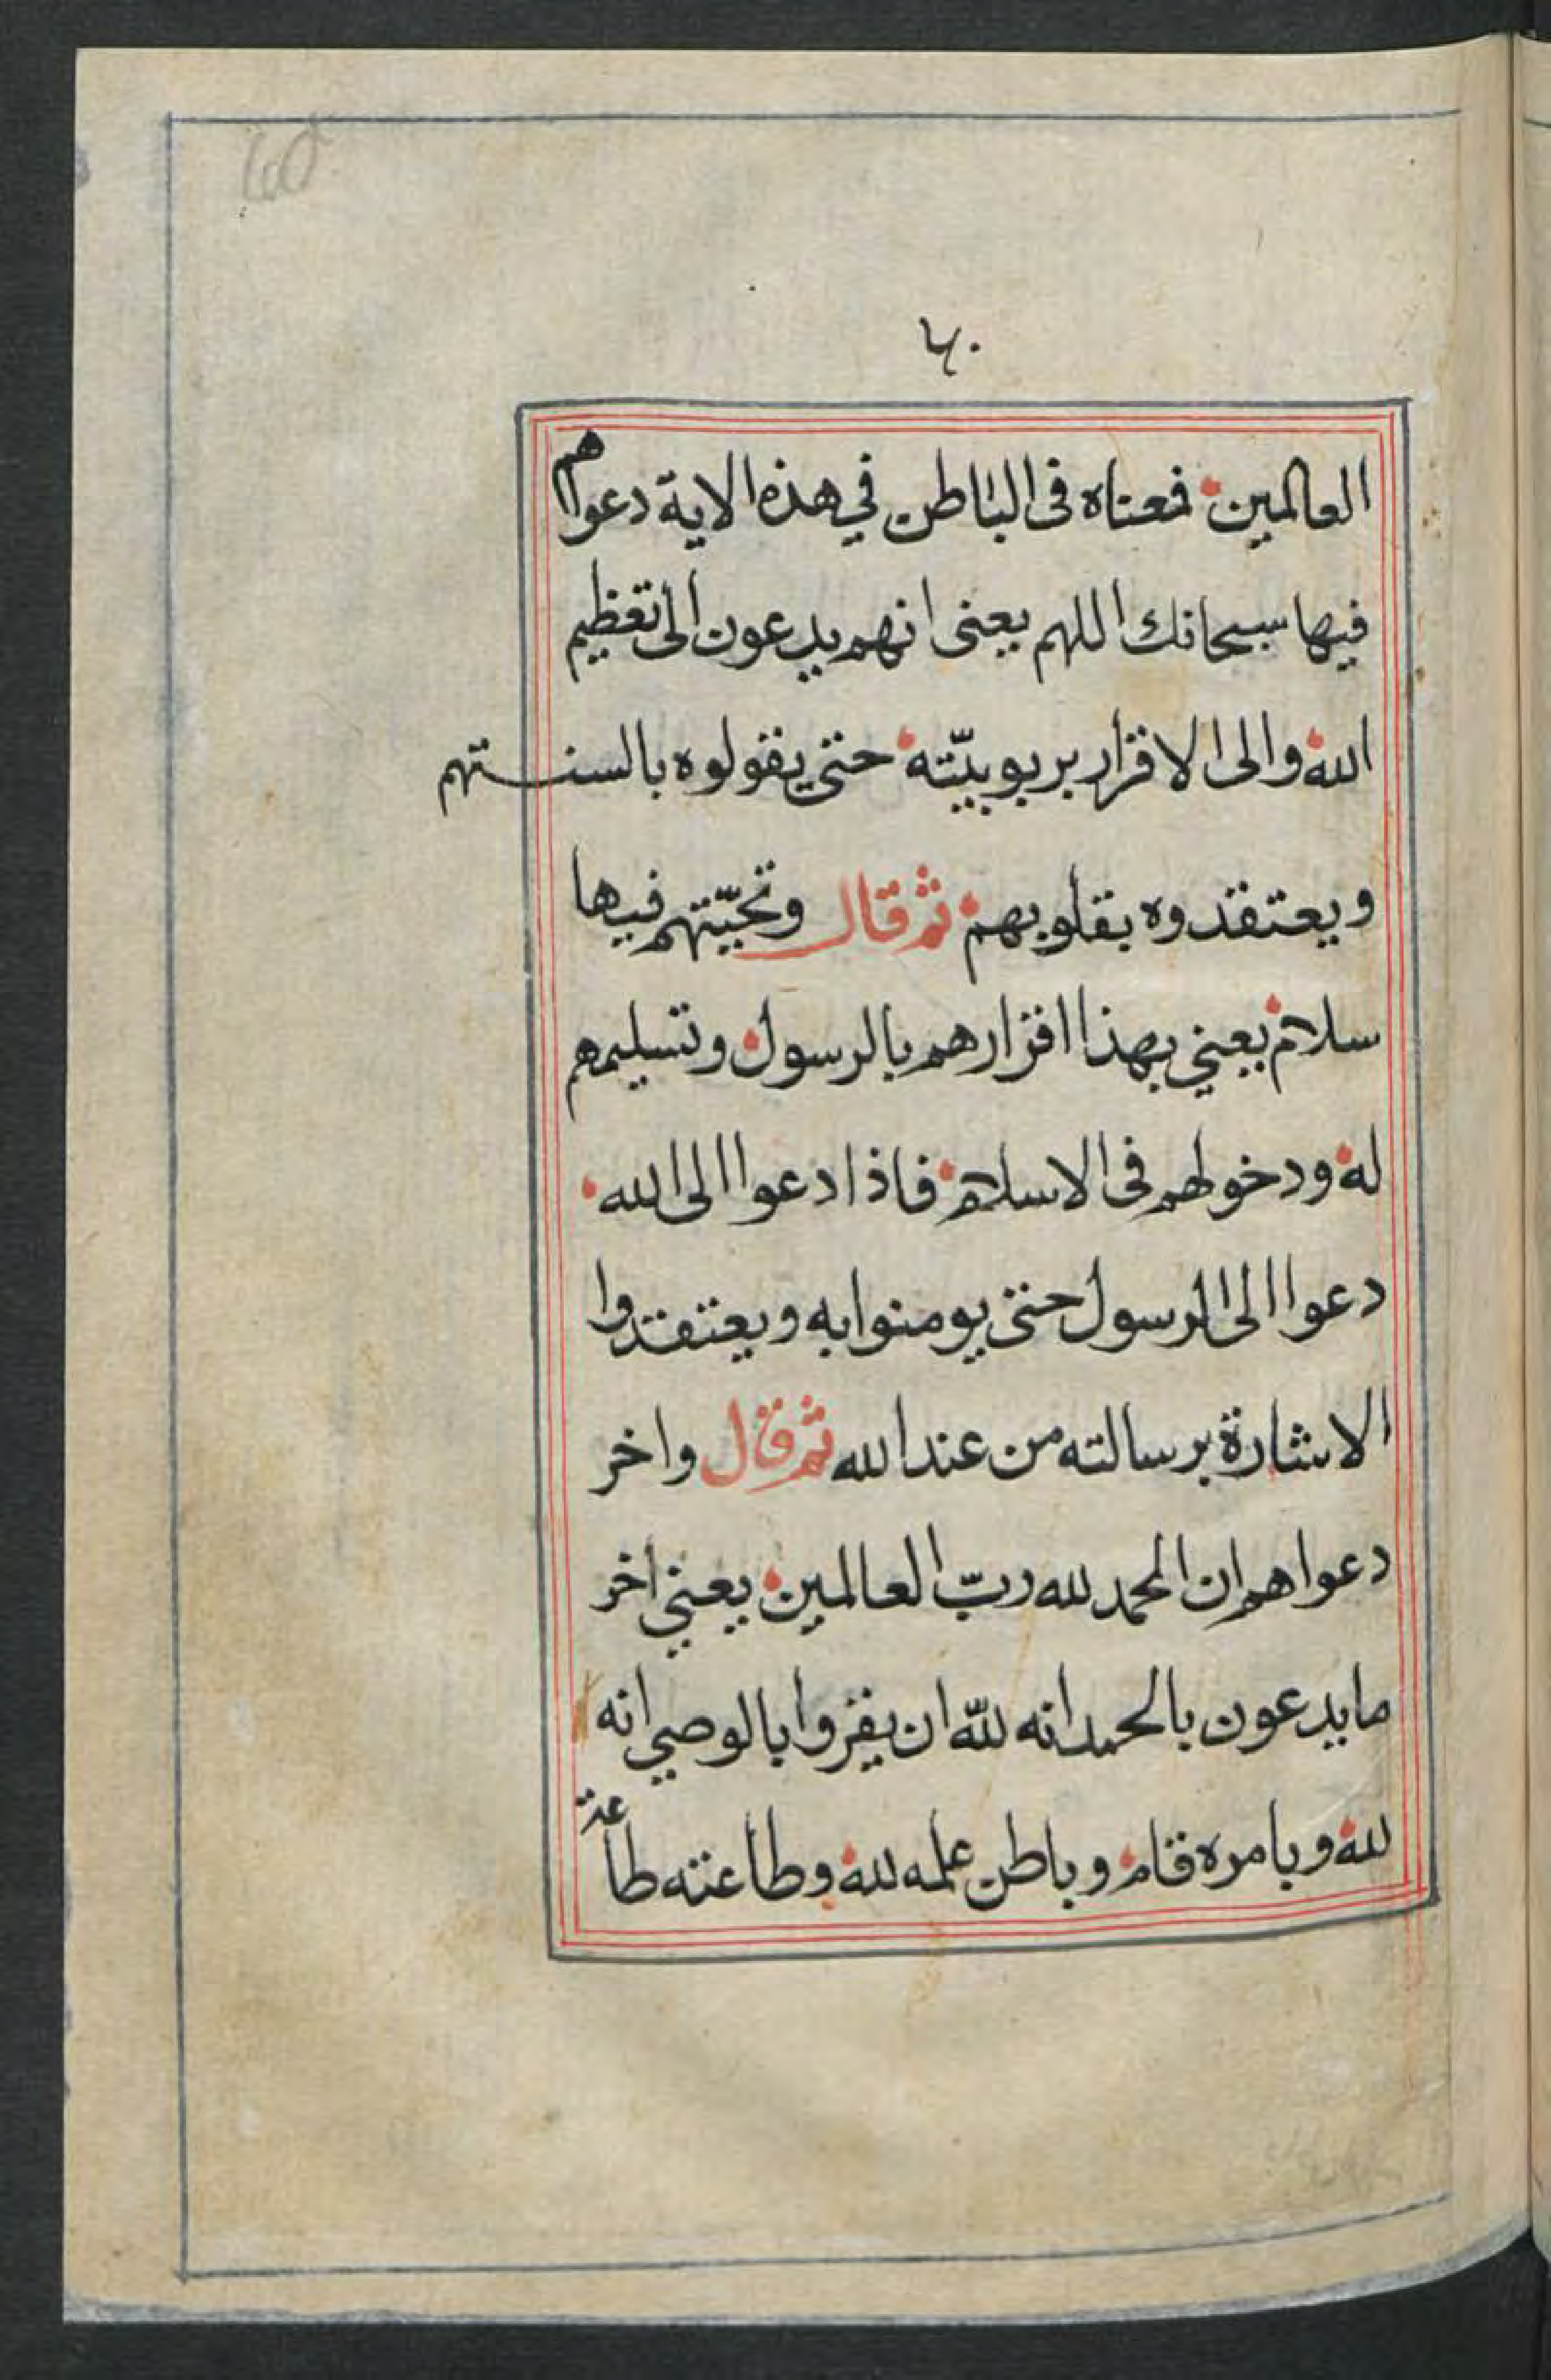 ٦٠
العالمين فمعناه فى الباطن في هذه الاية دعواهم
فيها سبحانك اللهم يعنى انهم يدعون الى تعظيم
الله والى الاقرار بربوبيّته حتى يقولوه بالسنتهم
ويعتقدوه بقلوبهم ثم قال وتحيّتهم فيها
سلام يعني بهذا اقرارهم بالرسول وتسليمهم
له ودخولهم فى الاسلام فاذا دعوا الى الله
دعوا الى الرسول حتى يومنوا به ويعتقدوا
الاشارة برسالته من عند الله ثم قال واخر
دعواهم ان الحمد لله ربّ العالمين يعني اخر
ما يدعون بالحمد انه لله ان يقروا بالوصي انه
لله وبامره قام وباطن علمه لله وطاعته طاعة